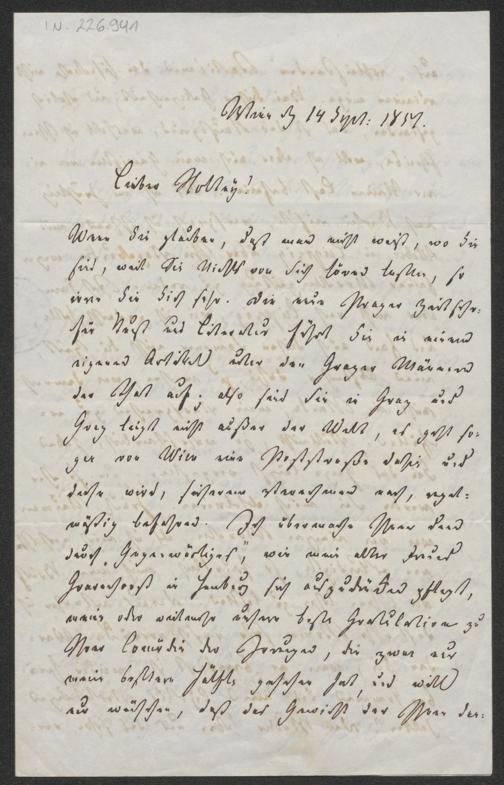 IN. 226.941
Wien d 14 Sept: 1857.
Lieber Holtey!
Wenn Sie glauben, daß man nicht weiß, wo Sie
sind, weil Sie Nichts von sich hören lassen, so
irren Sie sich sehr. Die neue Prager Zeitschr:
für Kunst und Literatur führt Sie in einem
eigenen Artikel unter den Grazer Männern
der That auf; also sind Sie in Graz und
Graz liegt nicht außer der Welt, es geht so-
gar von Wien eine Poststraße dahin und
diese wird, sicherem Vernehmen nach, regel-
mäßig befahren. Ich übermache Ihnen denn
durch „Gegenwärtiges", wie mein alter Freund
in Hamburg sich auszudrücken pflegt,
meine oder vielmehr unsere beste Gratulation zu
Ihrer Comödie der, die zwar nur
meine bessere Hälfte gesehen hat, und will
nur wünschen, daß das Gewicht der Ihnen dar-